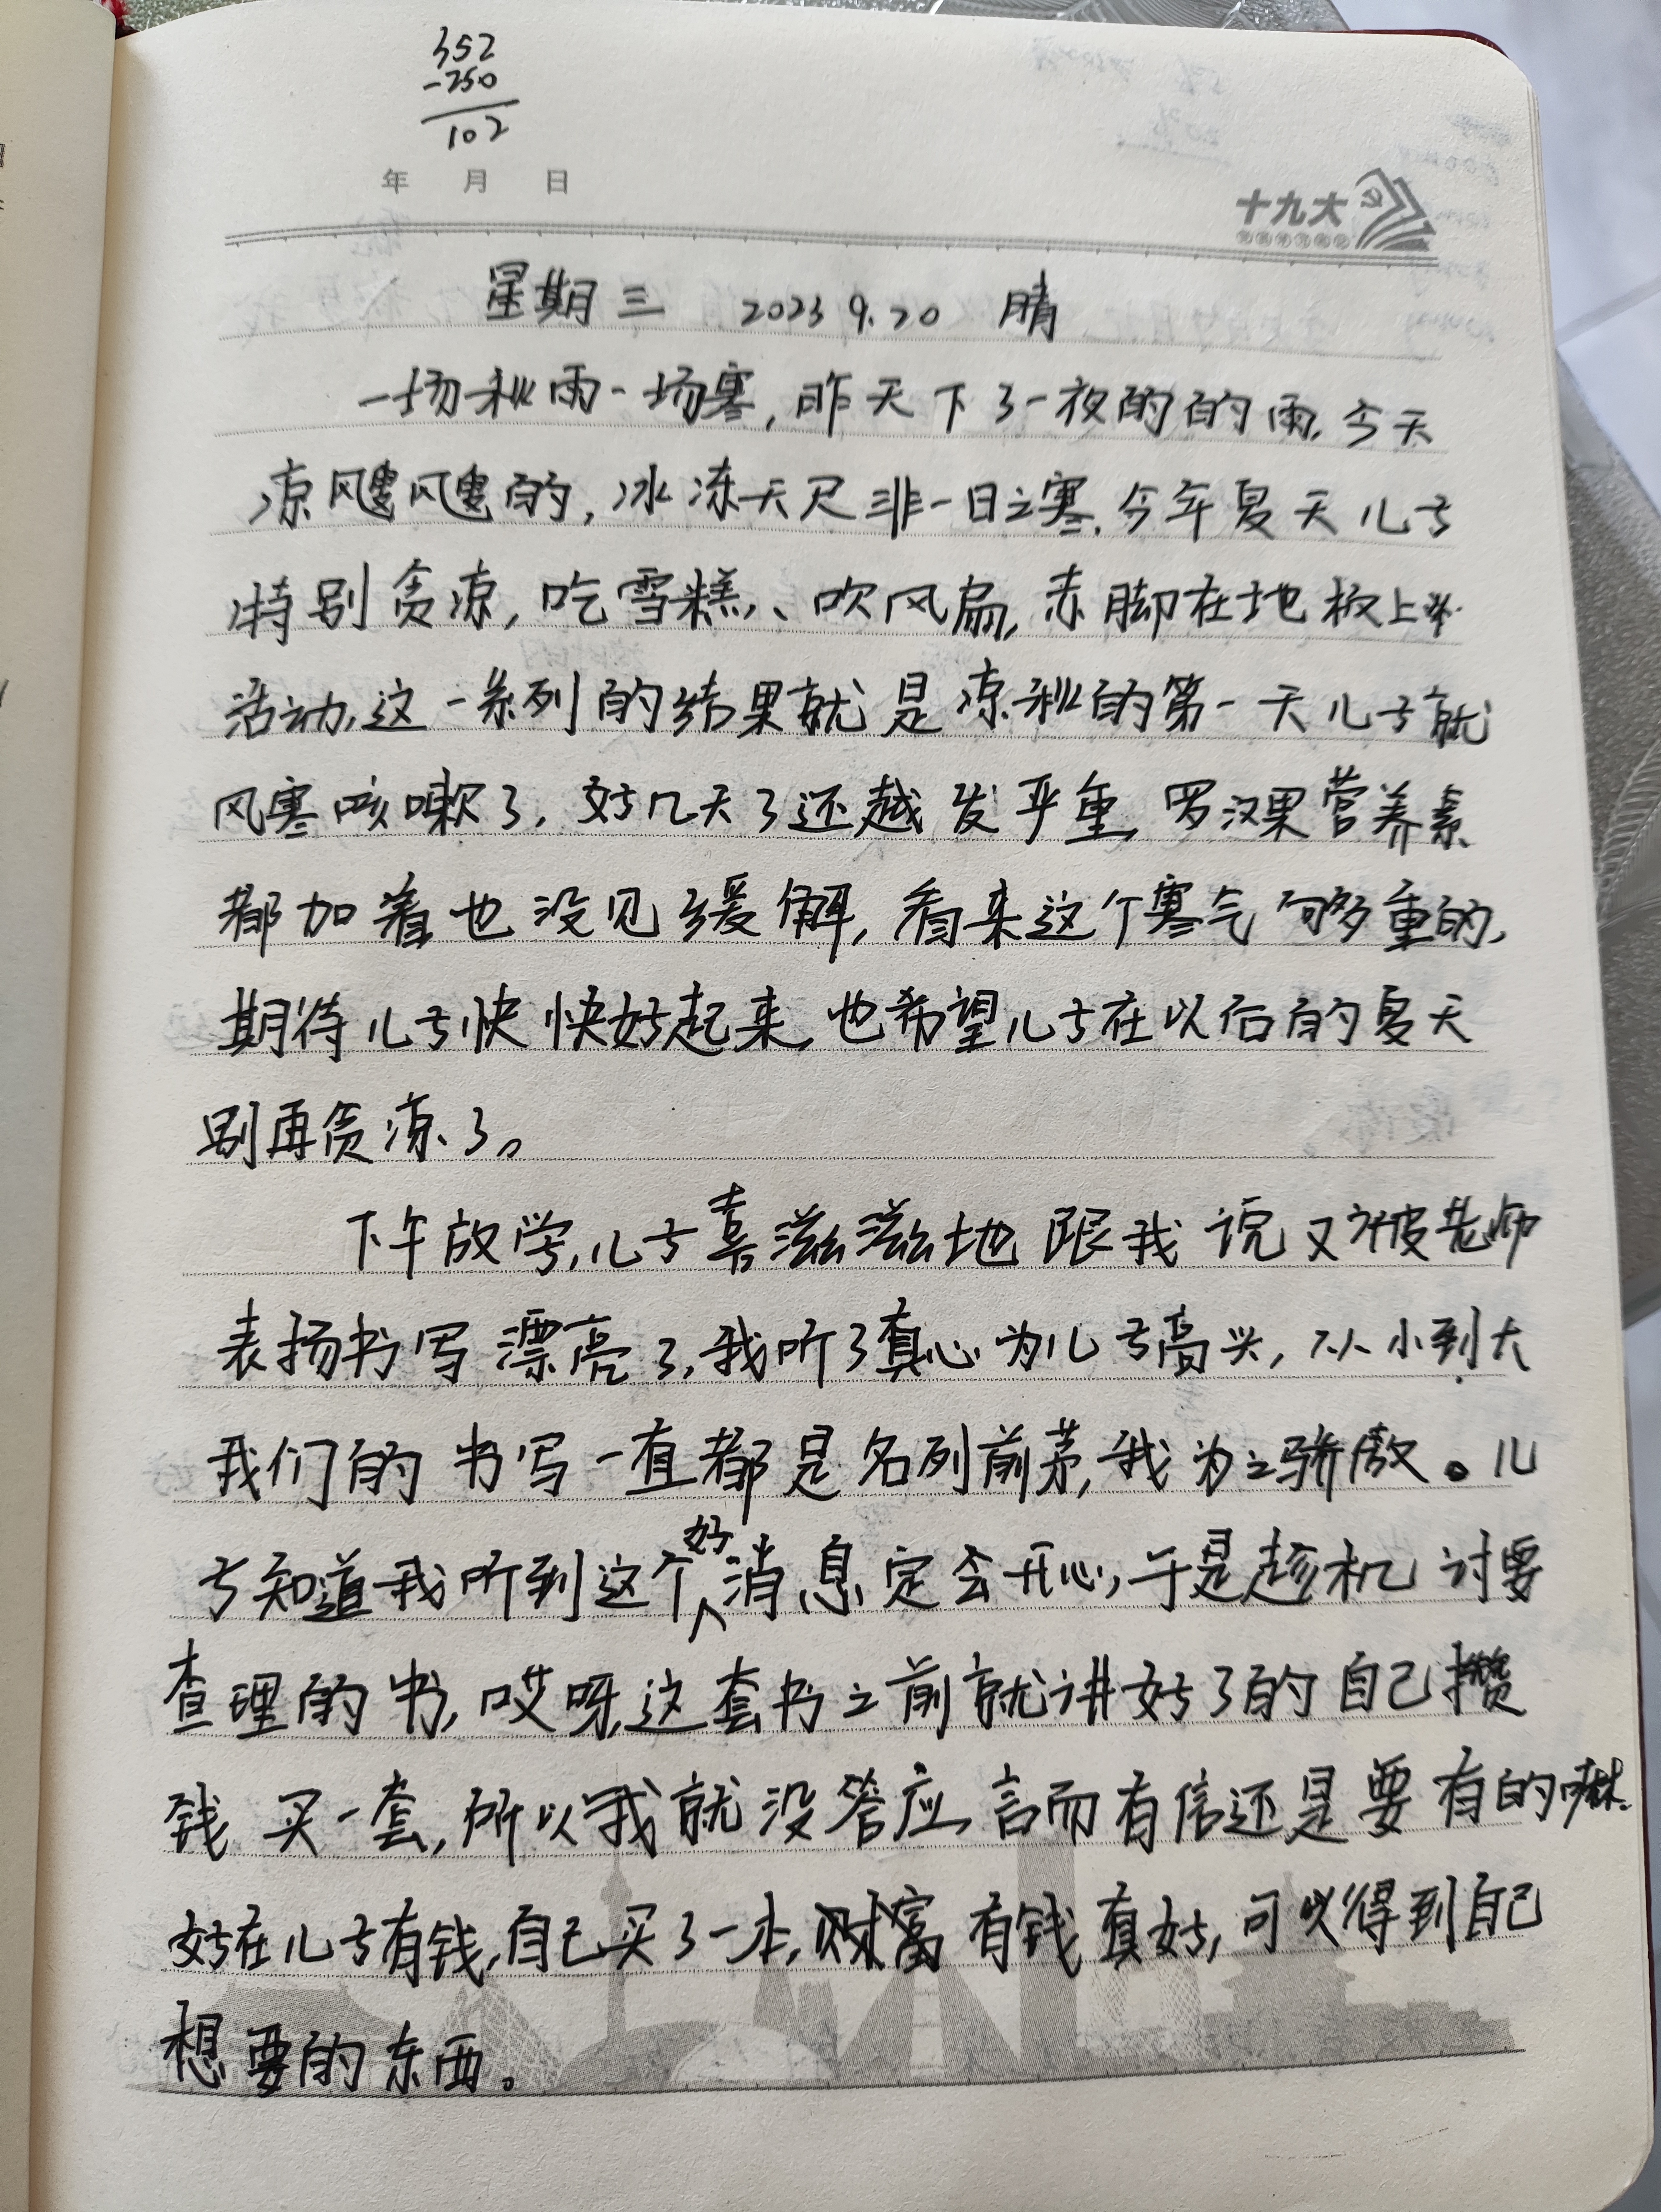 352
-250
102
年 月 日
十九大
星期三 2023 9.20 晴
一场秋雨一场寒,昨天下了一夜的的雨,今天
凉飕飕的,冰冻天尺非一日之寒,今年夏天儿子
特别贪凉,吃雪糕、吹风扇,赤脚在地板上
活动,这一系列的结果就是凉秋的第一天儿子就
风寒咳嗽了,好几天了还越发严重,罗汉果营养素
都加着也没见缓解,看来这个寒气够多重的,
期待儿子快快好起来,也希望儿子在以后的夏天
别再贪凉了。
下午放学,儿子喜滋滋地跟我说又被老师
表扬书写漂亮了,我听了真心为儿子高兴,从小到大
我们的书写一直都是名列前茅,我为之骄傲。儿
子知道我听到这个好消息定会开心,于是趁机讨要
查理的书,哎呀,这套书之前就讲好了的自己攒
钱买一套,所以我就没答应,言而有信还是要有的嘛.
好在儿子有钱,自己买了一本,财富有钱真好,可以得到自己
想要的东西。